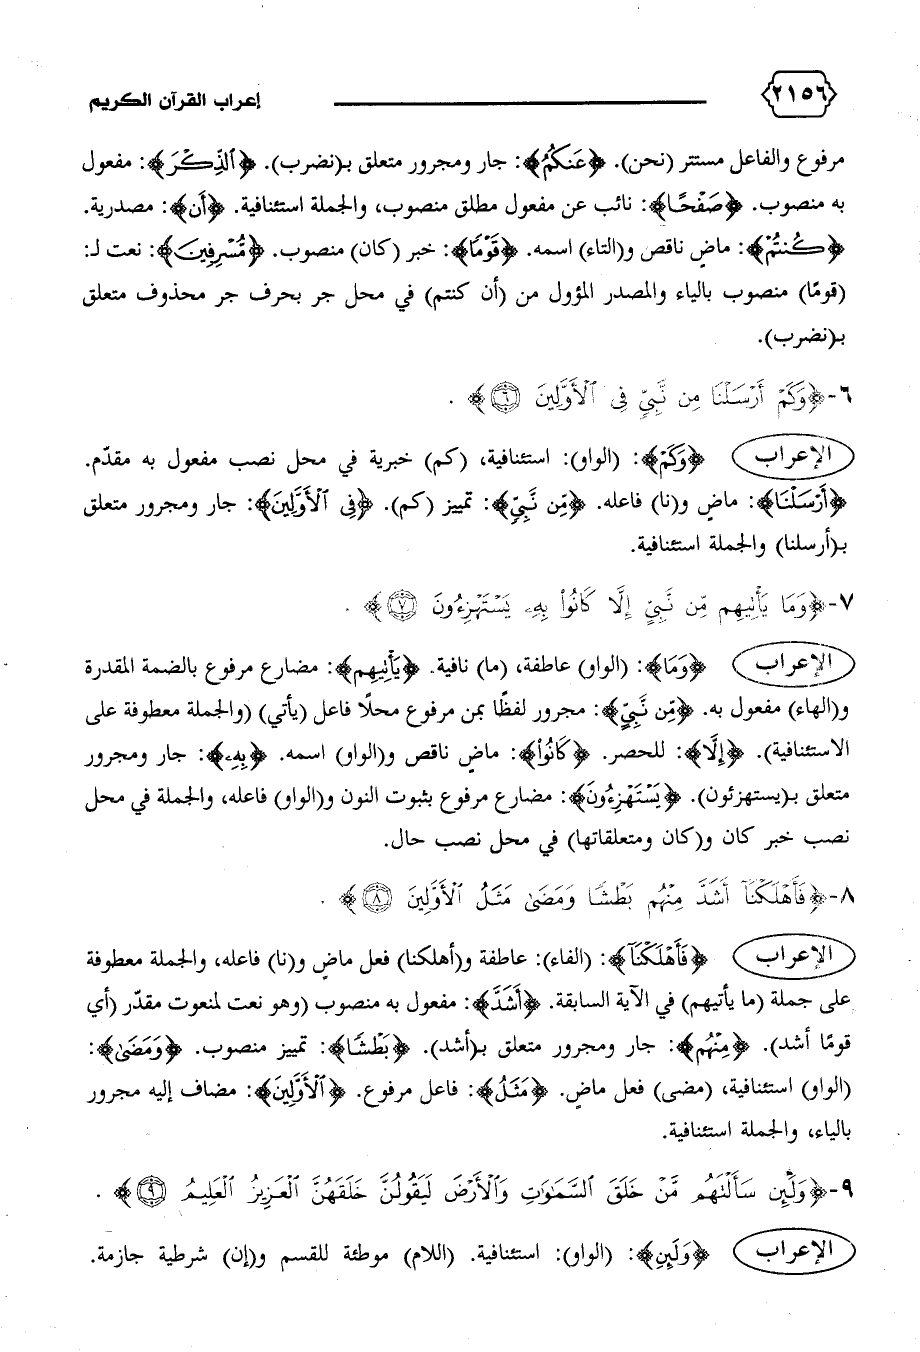 ٢١٥٦ إعراب القرآن الكريم
مرفوع والفاعل مستتر (نحن). ﴿عَنكُمُ﴾: جار ومجرور متعلق بـ(نضرب). ﴿ٱلذِّكْرَ﴾: مفعول
به منصوب. ﴿صَفْحًا﴾: نائب عن مفعول مطلق منصوب، والجملة استئنافية. ﴿أَن﴾: مصدرية.
﴿كُنتُمْ﴾: ماضٍ ناقص و(التاء) اسمه. ﴿قَوْمًا﴾: خبر (كان) منصوب. ﴿مُّسْرِفِينَ﴾: نعت لـ:
(قومًا) منصوب بالياء والمصدر المؤول من (أن كنتم) في محل جر بحرف جر محذوف متعلق
بـ(نضرب).
٦-﴿وَكَمْ أَرْسَلْنَا مِن نَّبِيٍّ فِى ٱلْأَوَّلِينَ ۝٦﴾ .
الإعراب ﴿وَكَمْ﴾: (الواو): استئنافية، (كم) خبرية في محل نصب مفعول به مقدّم.
﴿أَرْسَلْنَا﴾: ماضٍ و(نا) فاعله. ﴿مِن نَّبِيٍّ﴾: تمييز (كم). ﴿فِى ٱلْأَوَّلِينَ﴾: جار ومجرور متعلق
بـ(أرسلنا) والجملة استئنافية.
٧-﴿وَمَا يَأْتِيهِم مِّن نَّبِيٍّ إِلَّا كَانُوا۟ بِهِۦ يَسْتَهْزِءُونَ ۝٧﴾ .
الإعراب ﴿وَمَا﴾: (الواو) عاطفة، (ما) نافية. ﴿يَأْتِيهِم﴾: مضارع مرفوع بالضمة المقدرة
و(الهاء) مفعول به. ﴿مِّن نَّبِيٍّ﴾: مجرور لفظًا بمن مرفوع محلًا فاعل (يأتي) (والجملة معطوفة على
الاستئنافية). ﴿إِلَّا﴾: للحصر. ﴿كَانُوا۟﴾: ماضٍ ناقص و(الواو) اسمه. ﴿بِهِۦ﴾: جار ومجرور
متعلق بـ(يستهزئون). ﴿يَسْتَهْزِءُونَ﴾: مضارع مرفوع بثبوت النون و(الواو) فاعله، والجملة في محل
نصب خبر كان و(كان ومتعلقاتها) في محل نصب حال.
٨-﴿فَأَهْلَكْنَآ أَشَدَّ مِنْهُم بَطْشًا وَمَضَىٰ مَثَلُ ٱلْأَوَّلِينَ ۝٨﴾ .
الإعراب ﴿فَأَهْلَكْنَآ﴾: (الفاء): عاطفة و(أهلكنا) فعل ماضٍ و(نا) فاعله، والجملة معطوفة
على جملة (ما يأتيهم) في الآية السابقة. ﴿أَشَدَّ﴾: مفعول به منصوب (وهو نعت لمنعوت مقدّر (أي
قومًا أشد). ﴿مِنْهُم﴾: جار ومجرور متعلق بـ(أشد). ﴿بَطْشًا﴾: تمييز منصوب. ﴿وَمَضَىٰ﴾:
(الواو) استئنافية، (مضى) فعل ماضٍ. ﴿مَثَلُ﴾: فاعل مرفوع. ﴿ٱلْأَوَّلِينَ﴾: مضاف إليه مجرور
بالياء، والجملة استئنافية.
٩-﴿وَلَئِن سَأَلْتَهُم مَّنْ خَلَقَ ٱلسَّمَٰوَٰتِ وَٱلْأَرْضَ لَيَقُولُنَّ خَلَقَهُنَّ ٱلْعَزِيزُ ٱلْعَلِيمُ ۝٩﴾ .
الإعراب ﴿وَلَئِن﴾: (الواو): استئنافية. (اللام) موطئة للقسم و(إن) شرطية جازمة.